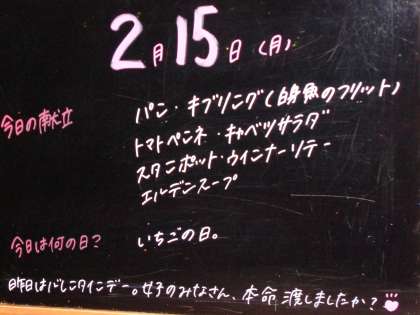 2月15日(月)
今日の献立
パン・キブリング(白身魚のフリット)
トマトペンネ・キャベツサラダ
スタンポット・ウィンナーソテー
エルデンスープ
今日は何の日?
いちごの日。
昨日はバレンタインデー。女子のみなさん、本命渡しましたか?